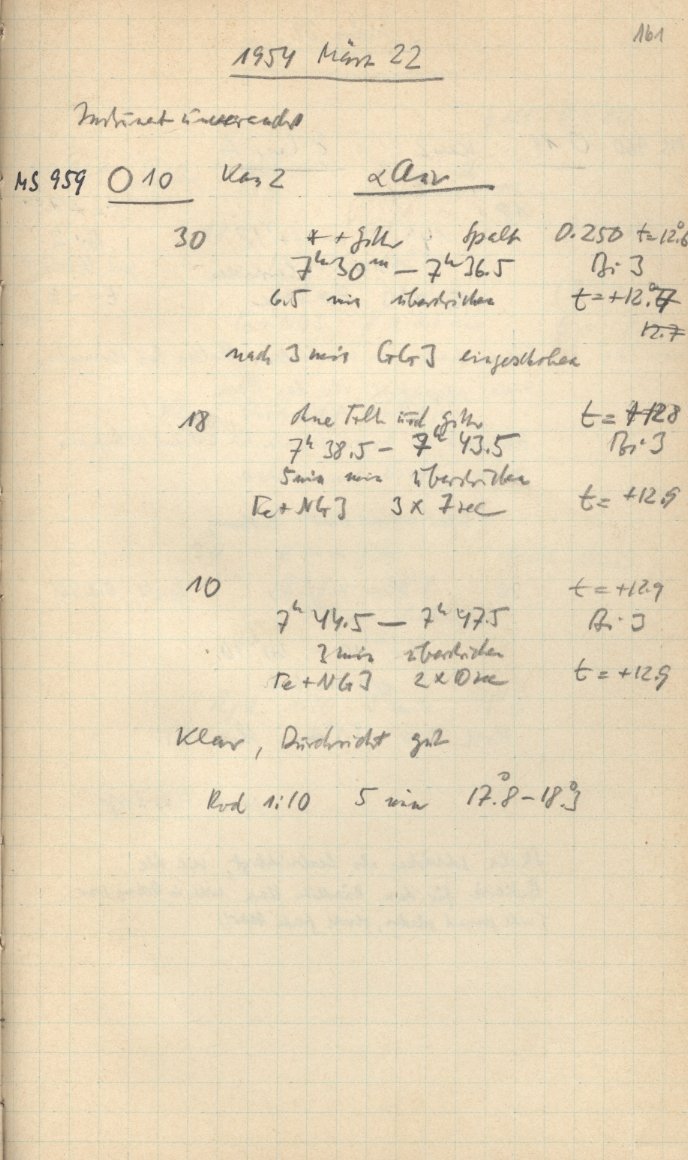 161
1954 März 22
Instrument unverändert
MS 959 O 10 Kas 2 α Aur
30 * + Gitter ; Spalt 0.250 t=12.°6
7ʰ30ᵐ — 7ʰ36.5 Bi 3
6.5 min überstrichen t=+12.°7
12.7
nach 3 min GG 3 eingeschoben
18 ohne Filter und Gitter t= +12.8
7ʰ38.5 — 7ʰ43.5 Bi 3
5 min überstrichen
Fe+NG3 3 x 7 sec t= +12.9
10 t=+12.9
7ʰ44.5 — 7ʰ47.5 Bi 3
3 min überstrichen
Fe+NG3 2 x 10 sec t=+12.9
Klar, Durchsicht gut
Rod 1:10 5 min 17.°8–18.°3